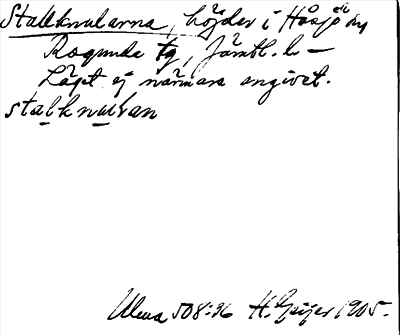 Stallknularna, höjder i Håsjö sn
Ragunda tg, Jämtl. l. –
Läget ej närmare angivet.
stalknulan
Ulma 508:36 H. Geijer 1905.